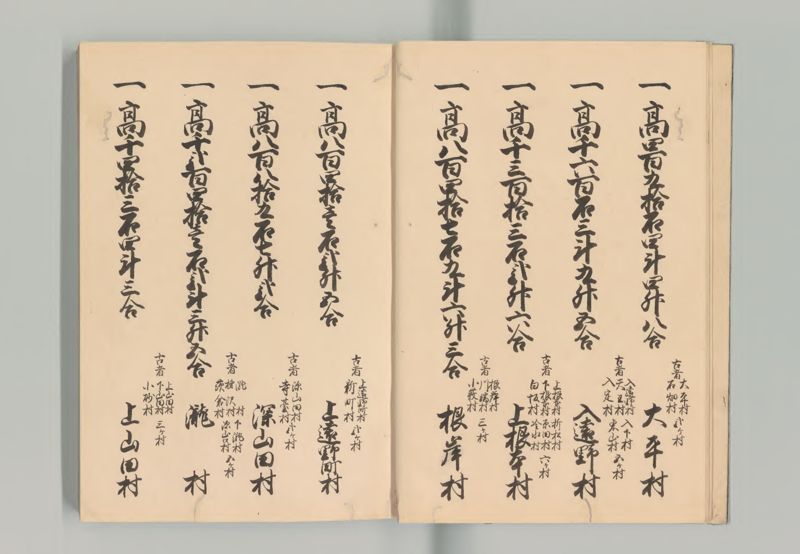 一高四百九拾石四斗四升八合
古者 大平村 弐ヶ村
石畑村
大平村
一高千六百石三斗九升五合
古者 入遠野村 入下村
天王村 東山村 五ヶ村
入定村
入遠野村
一高千三百拾三石弐升六合
古者 上根本村 折松村
下根本村 田村 六ヶ村
白坂村 水村
上根本村
一高八百四拾七石九斗六升三合
古者 根岸村
村 三ヶ村
小
根岸村
一高八百四拾壱石弐升五合
古者 上遠野村 弐ヶ村
新町村
上遠野町村
一高八百八拾九石七升弐合
古者 深山田村 弐ヶ村
寺村
深山田村
一高千弐百四拾壱石弐斗三升五合
古者 滝村 下滝村
沢村 五ヶ村
村
瀧村
一高千四拾三石四斗三合
古者 上山田村
下山田村 三ヶ村
小村
上山田村